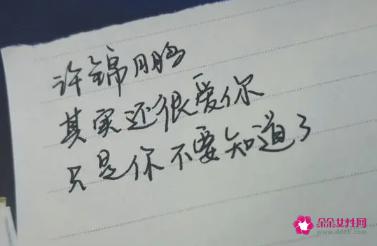 许锦鹏
其实还很爱你
只是你不要知道了
朵朵女性网